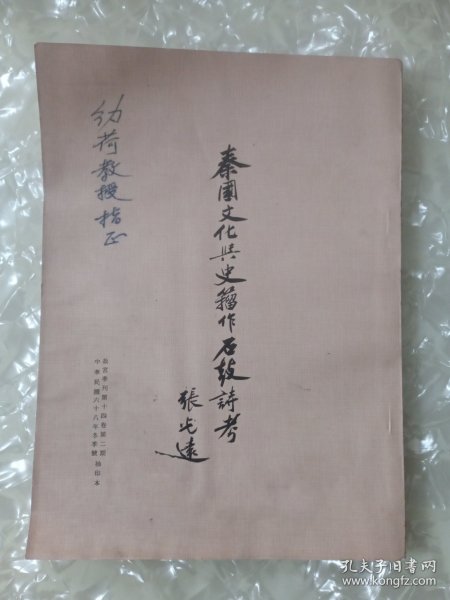 秦國文化與史籀作石鼓詩考
張光遠
故宮季刊第十四卷第二期
中華民國六十八年冬季號 抽印本
幼荷教授指正
孔夫子旧书网
www.kongfz.com